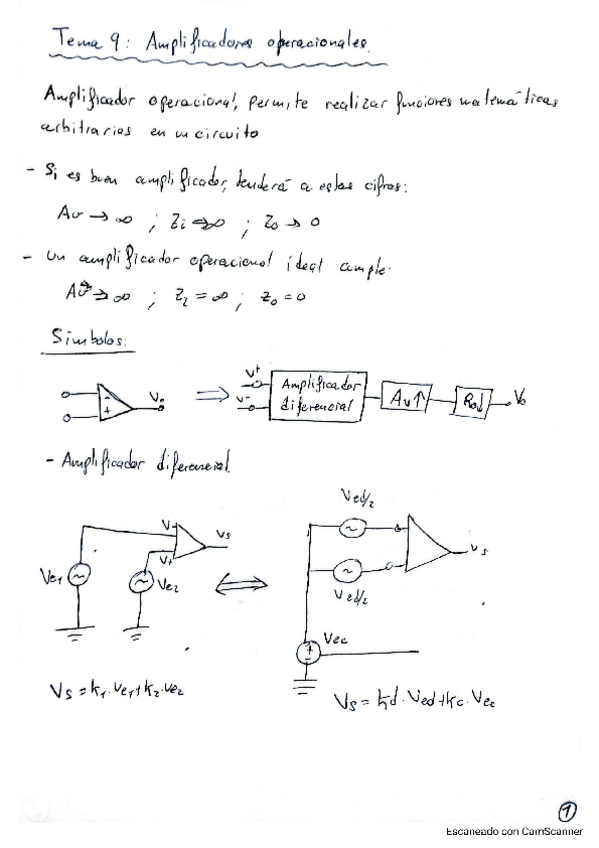 Tema 9: Amplificadores operacionales.
Amplificador operacional, permite realizar funciones matemáticas
arbitrarias en un circuito
- Si es buen amplificador, tenderá a estas cifras:
Av → ∞ ; Zi → ∞ ; Zo → 0
- Un amplificador operacional ideal cumple:
Av → ∞ ; Zi = ∞ ; Zo = 0
Símbolos:
- + Vo ⇒ V+ V- Amplificador diferencial Av↑ Ro↓ Vo
- Amplificador diferencial.
Ve1 Ve2 V- V+ Vs ⇔ Ved/2 Ved/2 Vs Vec + -
Vs = k1·Ve1+k2·Ve2
Vs = kd·Ved+kc·Vec
1
Escaneado con CamScanner